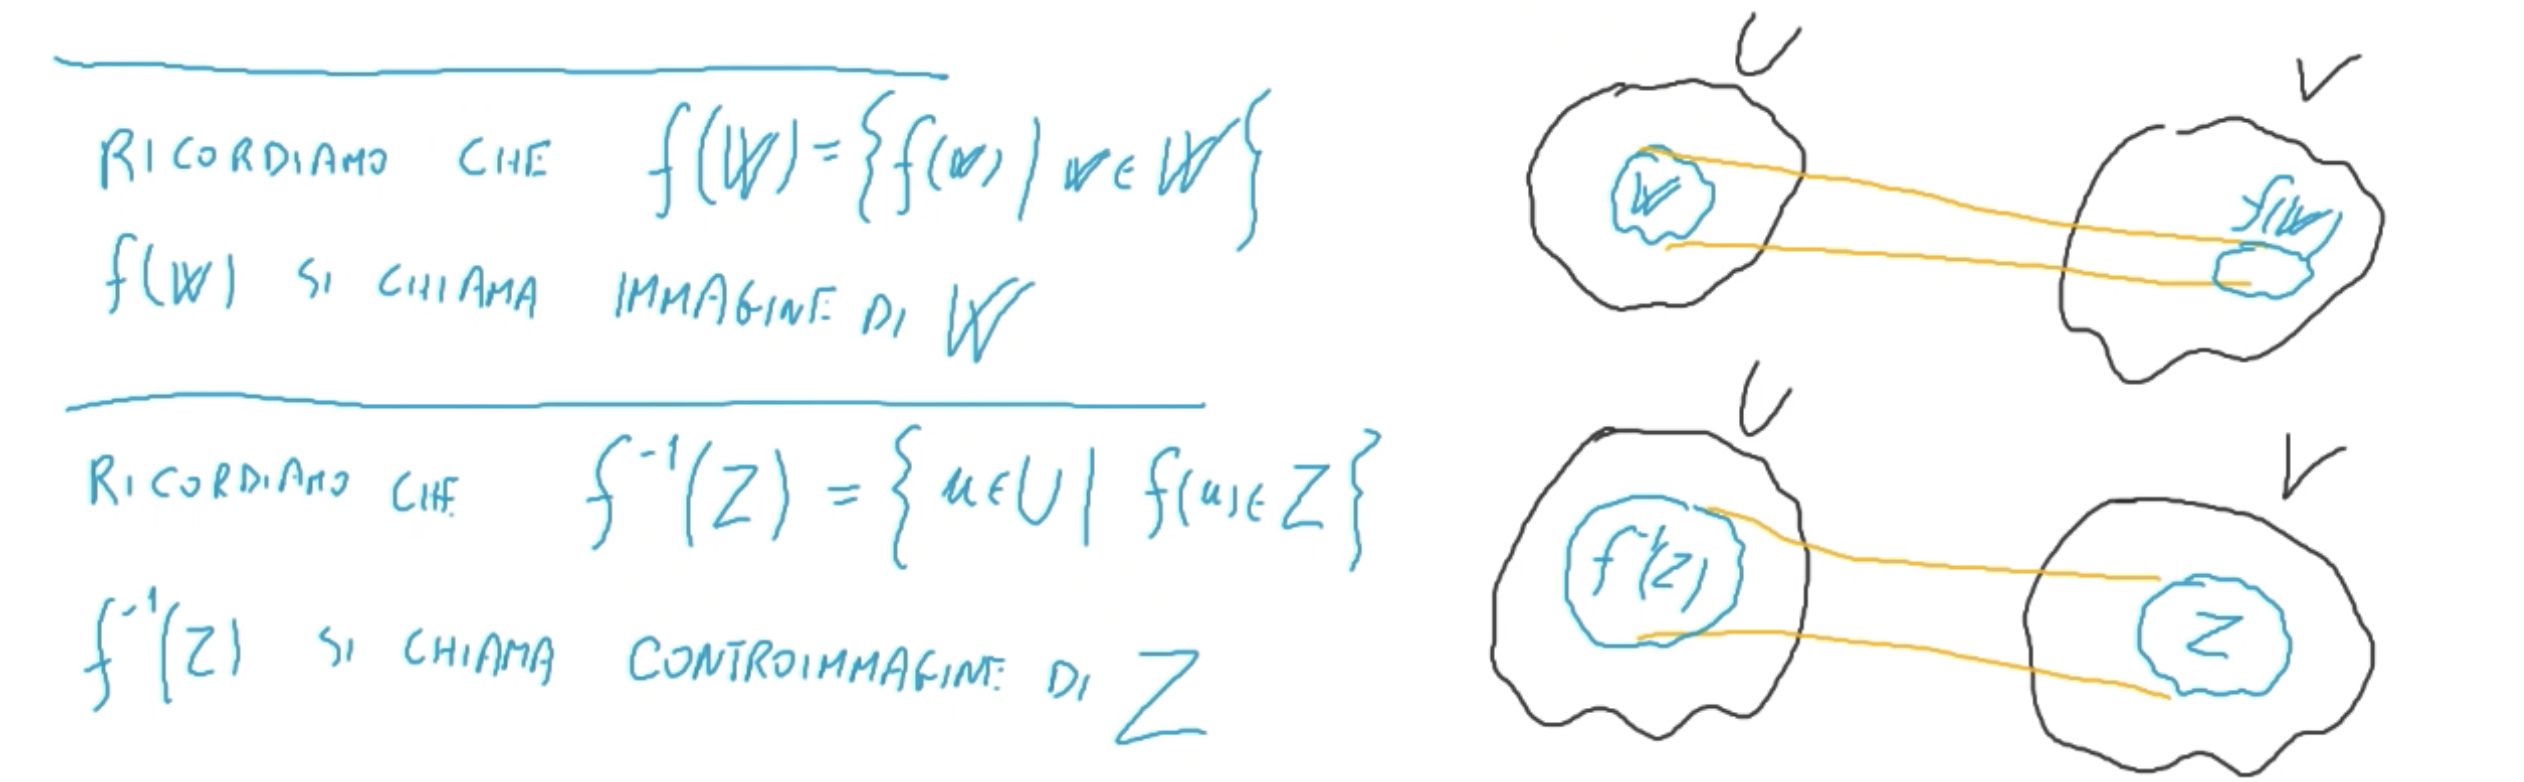 RICORDIAMO CHE f(W) = {f(w) | w ∈ W}
f(W) SI CHIAMA IMMAGINE DI W
RICORDIAMO CHE f⁻¹(Z) = {u ∈ U | f(u) ∈ Z}
f⁻¹(Z) SI CHIAMA CONTROIMMAGINE DI Z
U
V
W
f(W)
U
V
f⁻¹(Z)
Z